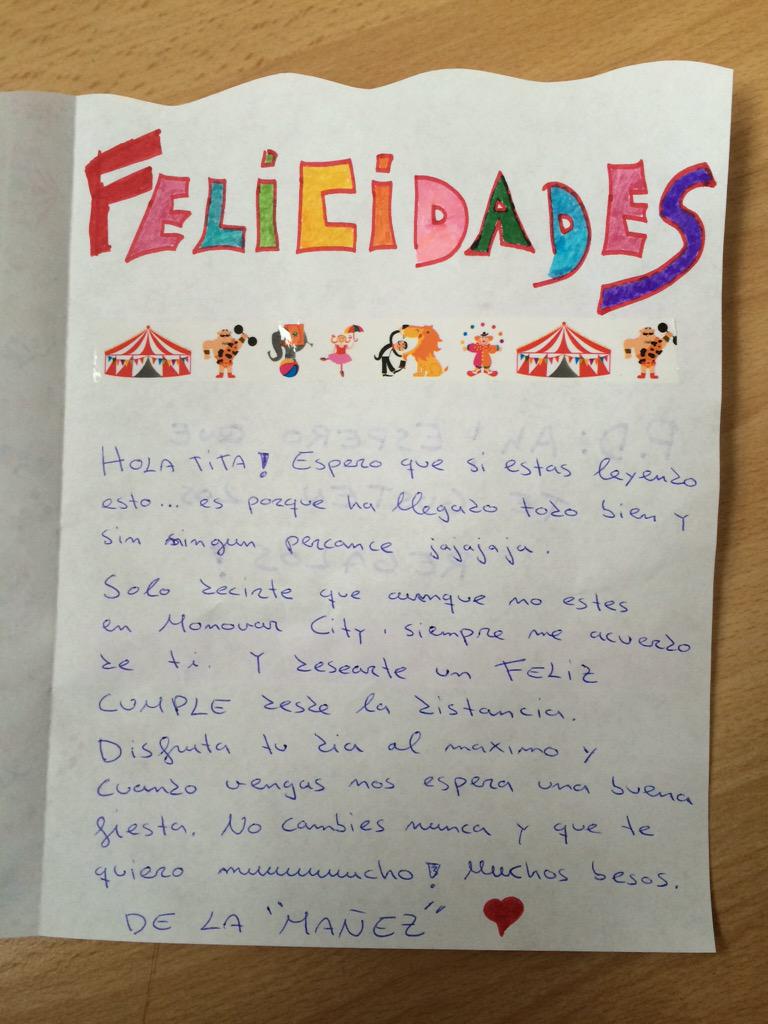 FELICIDADES
HOLA TITA! Espero que si estas leyendo
esto... es porque ha llegado todo bien y
sin ningun percance jajajaja.
Solo decirte que aunque no estes
en Monovar City, siempre me acuerdo
de ti. Y desearte un FELIZ
CUMPLE desde la distancia.
Disfruta tu dia al maximo y
cuando vengas nos espera una buena
fiesta. No cambies nunca y que te
quiero muuuuuuucho! Muchos besos.
DE LA "MAÑEZ"
P.D: AH! ESPERO QUE
REGALOS!